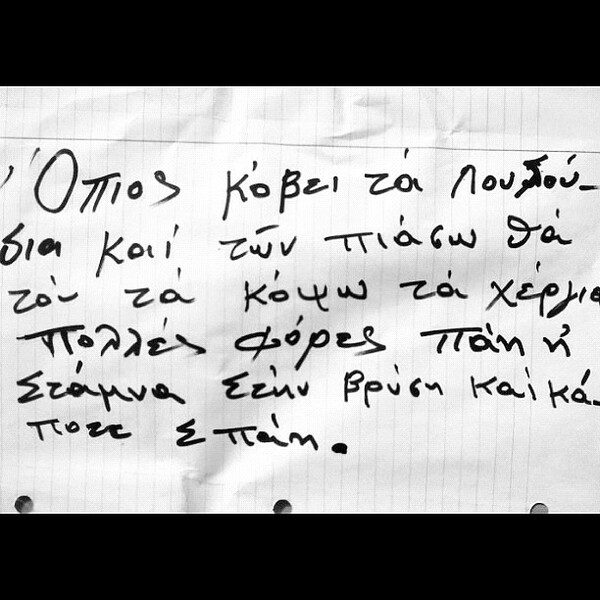 Όπιος κόβει τά λουλού-
δια καί τών πιάσω θά
τόν τά κόψω τά χέργια
πολλές φόρες πάη ή
στάμνα στήν βρύση καί κά-
ποτε σπάη.